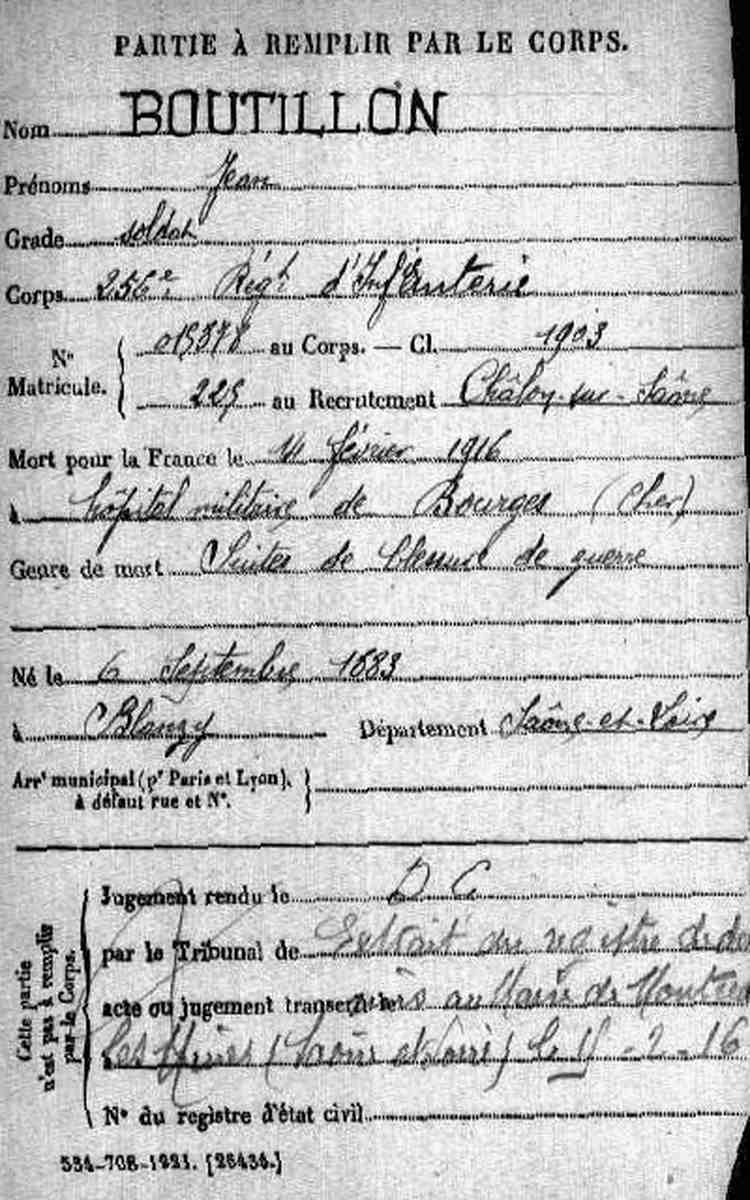 PARTIE À REMPLIR PAR LE CORPS.
Nom BOUTILLON
Prénoms Jean
Grade soldat
Corps 256e Régt d'Infanterie
N° Matricule. 015378 au Corps. — Cl. 1903
225 au Recrutement Châlon-sur-Saône
Mort pour la France le 14 février 1916
à hôpital militaire de Bourges (Cher)
Genre de mort Suites de blessure de guerre
Né le 6 Septembre 1883
à Blanzy Département Saône-et-Loire
Arrt municipal (pr Paris et Lyon),
à défaut rue et N°.
Cette partie
n'est pas à remplir
par le Corps.
Jugement rendu le D C
par le Tribunal de Extrait du registre de
acte ou jugement transcrit le au Maire de
les Mines (Saône et Loire) le -2-16
N° du registre d'état civil
534-708-1921. [26434.]